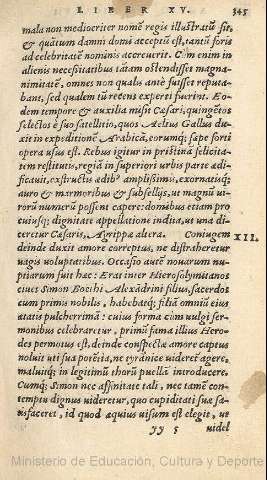 LIBER XV. 345
mala non mediocriter nomẽ regis illustratũ sit,
& quãtum damni domi acceptũ est, tantũ foris
ad celebritatẽ nominis accreuerit. Cũ enim in
alienis necessitatibus tãtam ostendisset magna-
nimitatẽ, omnes non qualis antè fuisset reputa-
bant, sed qualem tũ recens experti fuerint. Eo-
dem tempore & auxilia misit Cæsari, quingẽtos
selectos è suo satellitio, quos Aelius Gallus du-
xit in expeditionẽ Arabicã, eorumq; sæpe forti
opera usus est. Rebus igitur in pristinã felicita-
tem restitutis, regiã in superiori urbis parte ædi-
ficauit, exstructis ædib⁹ amplißimis, exornatisq;
auro & marmoribus & subsellijs, ut magnũ ui-
rorũ numerũ possent capere: domibus etiam pro
cuiusq; dignitate appellatione indita, ut una di-
ceretur Cæsaris, Agrippæ altera. Coniugem XII.
deinde duxit amore correptus, ne distraheretur
uagis uoluptatibus. Occasio autẽ nouarum nu-
ptiarum fuit hæc: Erat inter Hierosolymitanos
ciues Simon Boëthi Alexãdrini filius, sacerdos
cum primis nobilis, habebatq; filiã omniũ eius
ætatis pulcherrimã: cuius forma cùm uulgi ser-
monibus celebraretur, primũ fama illius Hero-
des permotus est, deinde conspectæ amore captus
noluit uti sua potẽtia, ne tyrãnice uideret̃ agere,
maluitq; in legitimũ thorũ puellã introducere.
Cumq; Simon nec affinitate tali, nec tamẽ con-
temptu dignus uideretur, quo cupiditati suæ sa-
tisfaceret, id quod æquius uisum est elegit, ut
yy 5 uidel
Ministerio de Educación, Cultura y Deporte